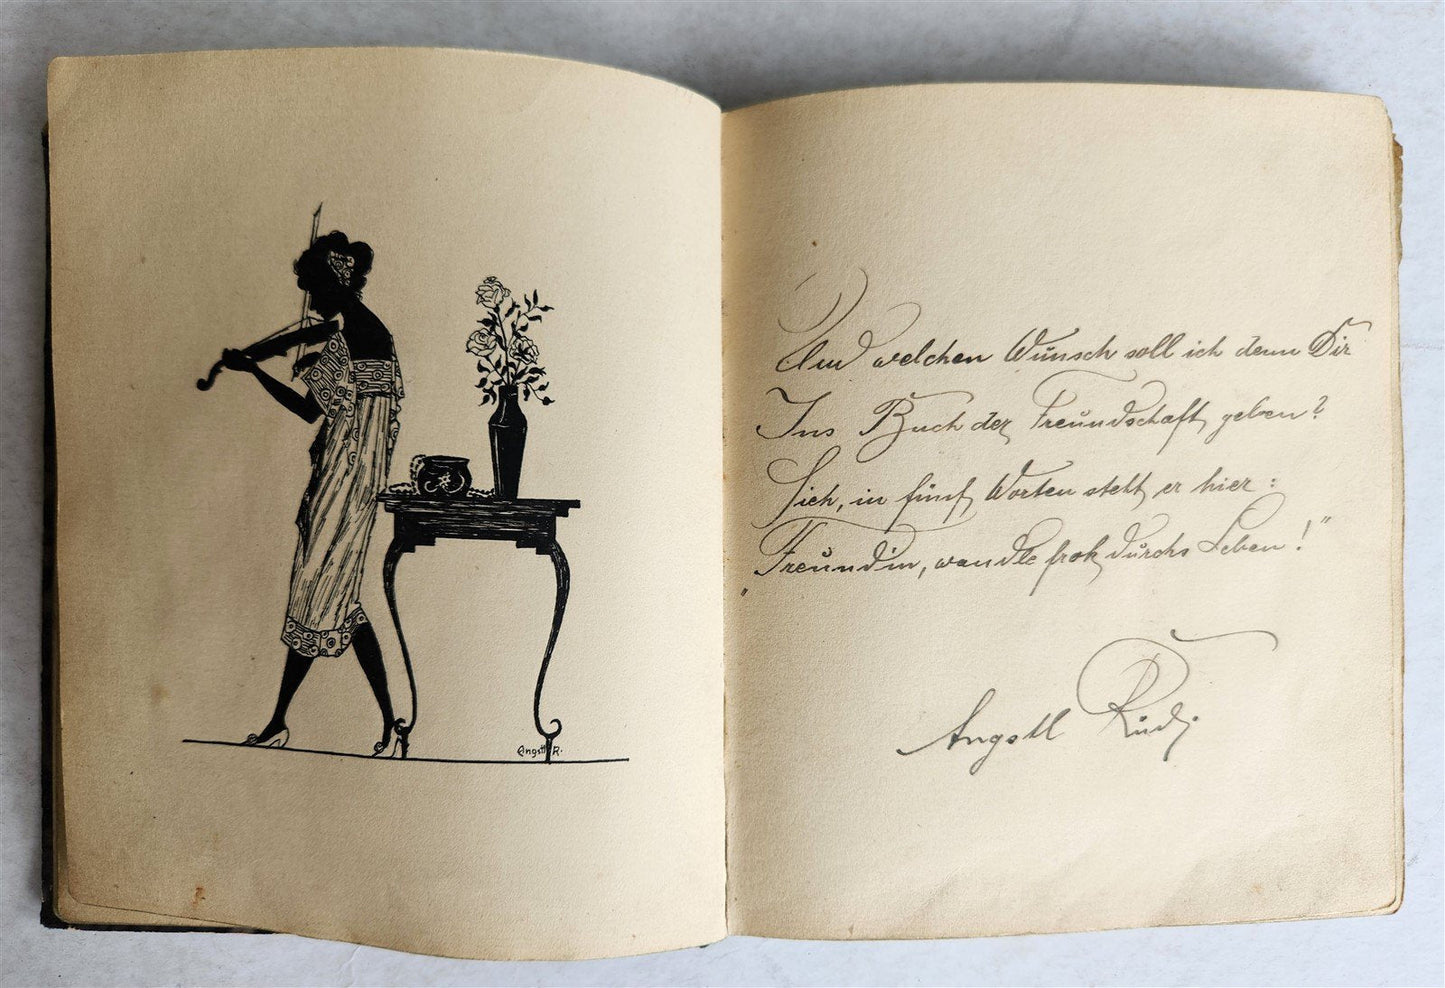 Angstl R.
Und welchen Wunsch soll ich denn Dir
Ins Buch der Freundschaft geben?
Sieh, in fünf Worten steht er hier:
"Freundin, wandle froh durchs Leben!"
Angstl Rudi